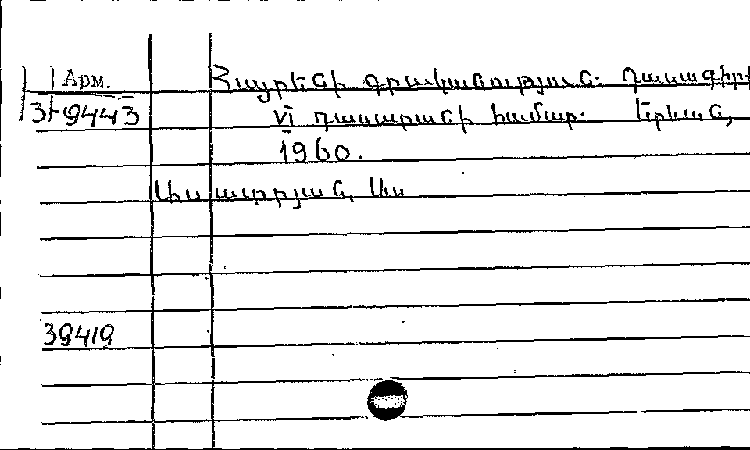 Арм.
3Ւ-9443
Հայրենի գրականություն: Դասագիրք
VI դասարանի համար. Երևան,
1960.
Ասատրյան, Աս
39419